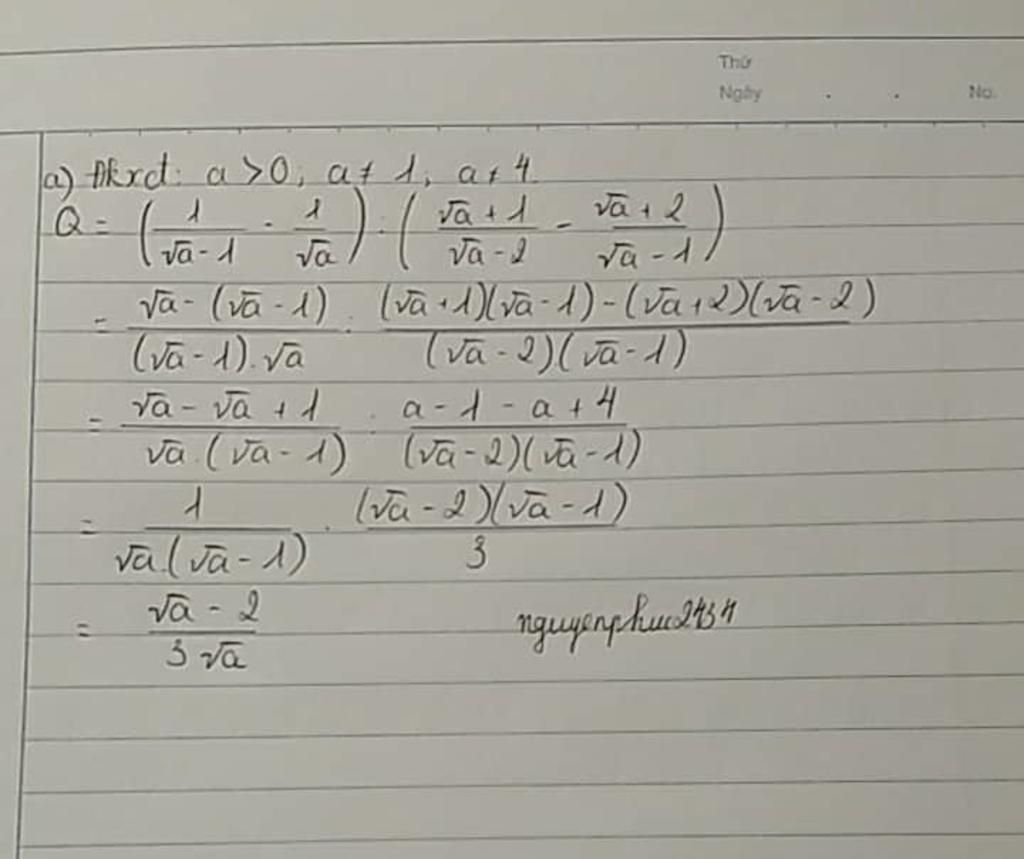 Thứ
Ngày . . No.
a) Đkxđ: a > 0; a ≠ 1, a ≠ 4.
Q = (1/(√a - 1) - 1/√a) : ((√a + 1)/(√a - 2) - (√a + 2)/(√a - 1))
= (√a - (√a - 1))/((√a - 1).√a) : ((√a + 1)(√a - 1) - (√a + 2)(√a - 2))/((√a - 2)(√a - 1))
= (√a - √a + 1)/(√a.(√a - 1)) : (a - 1 - a + 4)/((√a - 2)(√a - 1))
= 1/(√a.(√a - 1)) . ((√a - 2)(√a - 1))/3
= (√a - 2)/(3√a) nguyenphuc2434